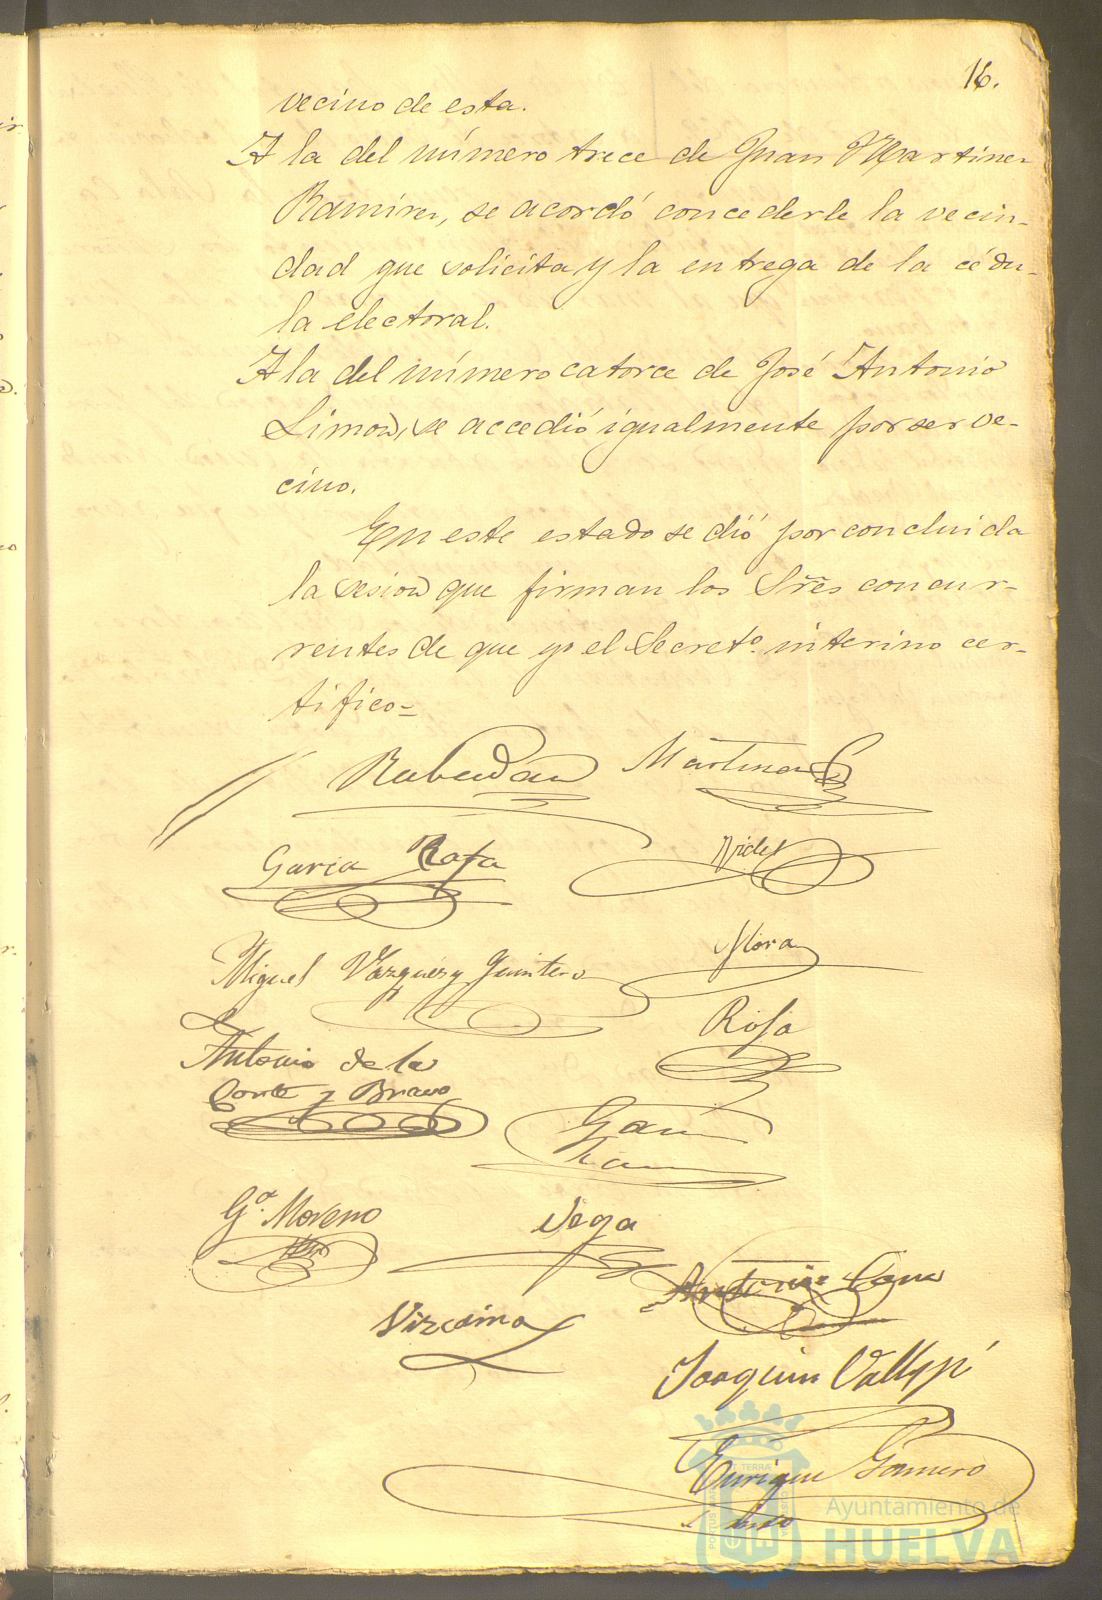 16.
vecino de esta.
A la del número trece de Juan Martinez
Ramirez, se acordó concederle la vecin-
dad que solicita y la entrega de la cédu-
la electoral.
A la del número catorce de José Antonio
Limon, se accedió igualmente por ser ve-
cino.
En este estado se dió por concluida
la sesion que firman los Sres concur-
rentes de que yo el Secreto. interino cer-
tifico=
Rabadán Martinez
Garcia Rafa
Mora
Miguel Vázquez y Quintero
Rioja
Antonio de la
Corte y Bravo
Ga. Moreno Vega
Antonio Cano
Vizcaino
Joaquin
Enrique Gamero
Ayuntamiento de
HUELVA